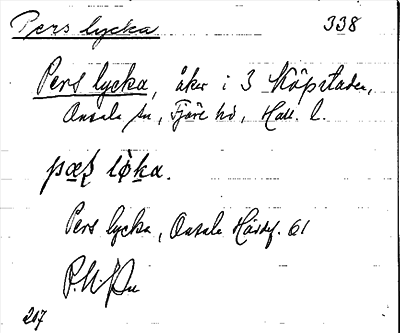 Pers lycka 338
Pers lycka, åker i 3 Köpstaden,
Onsala sn, Fjäre hd, Hall. l.
pæʂ lỳka.
Pers lycka, Onsala Härdsf. 61
217